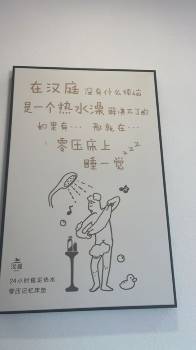 在汉庭 没有什么烦恼
是一个热水澡解决不了的
如果有… 那就在…
零压床上 zzz
睡一觉
汉庭
24小时稳定热水
零压记忆床垫